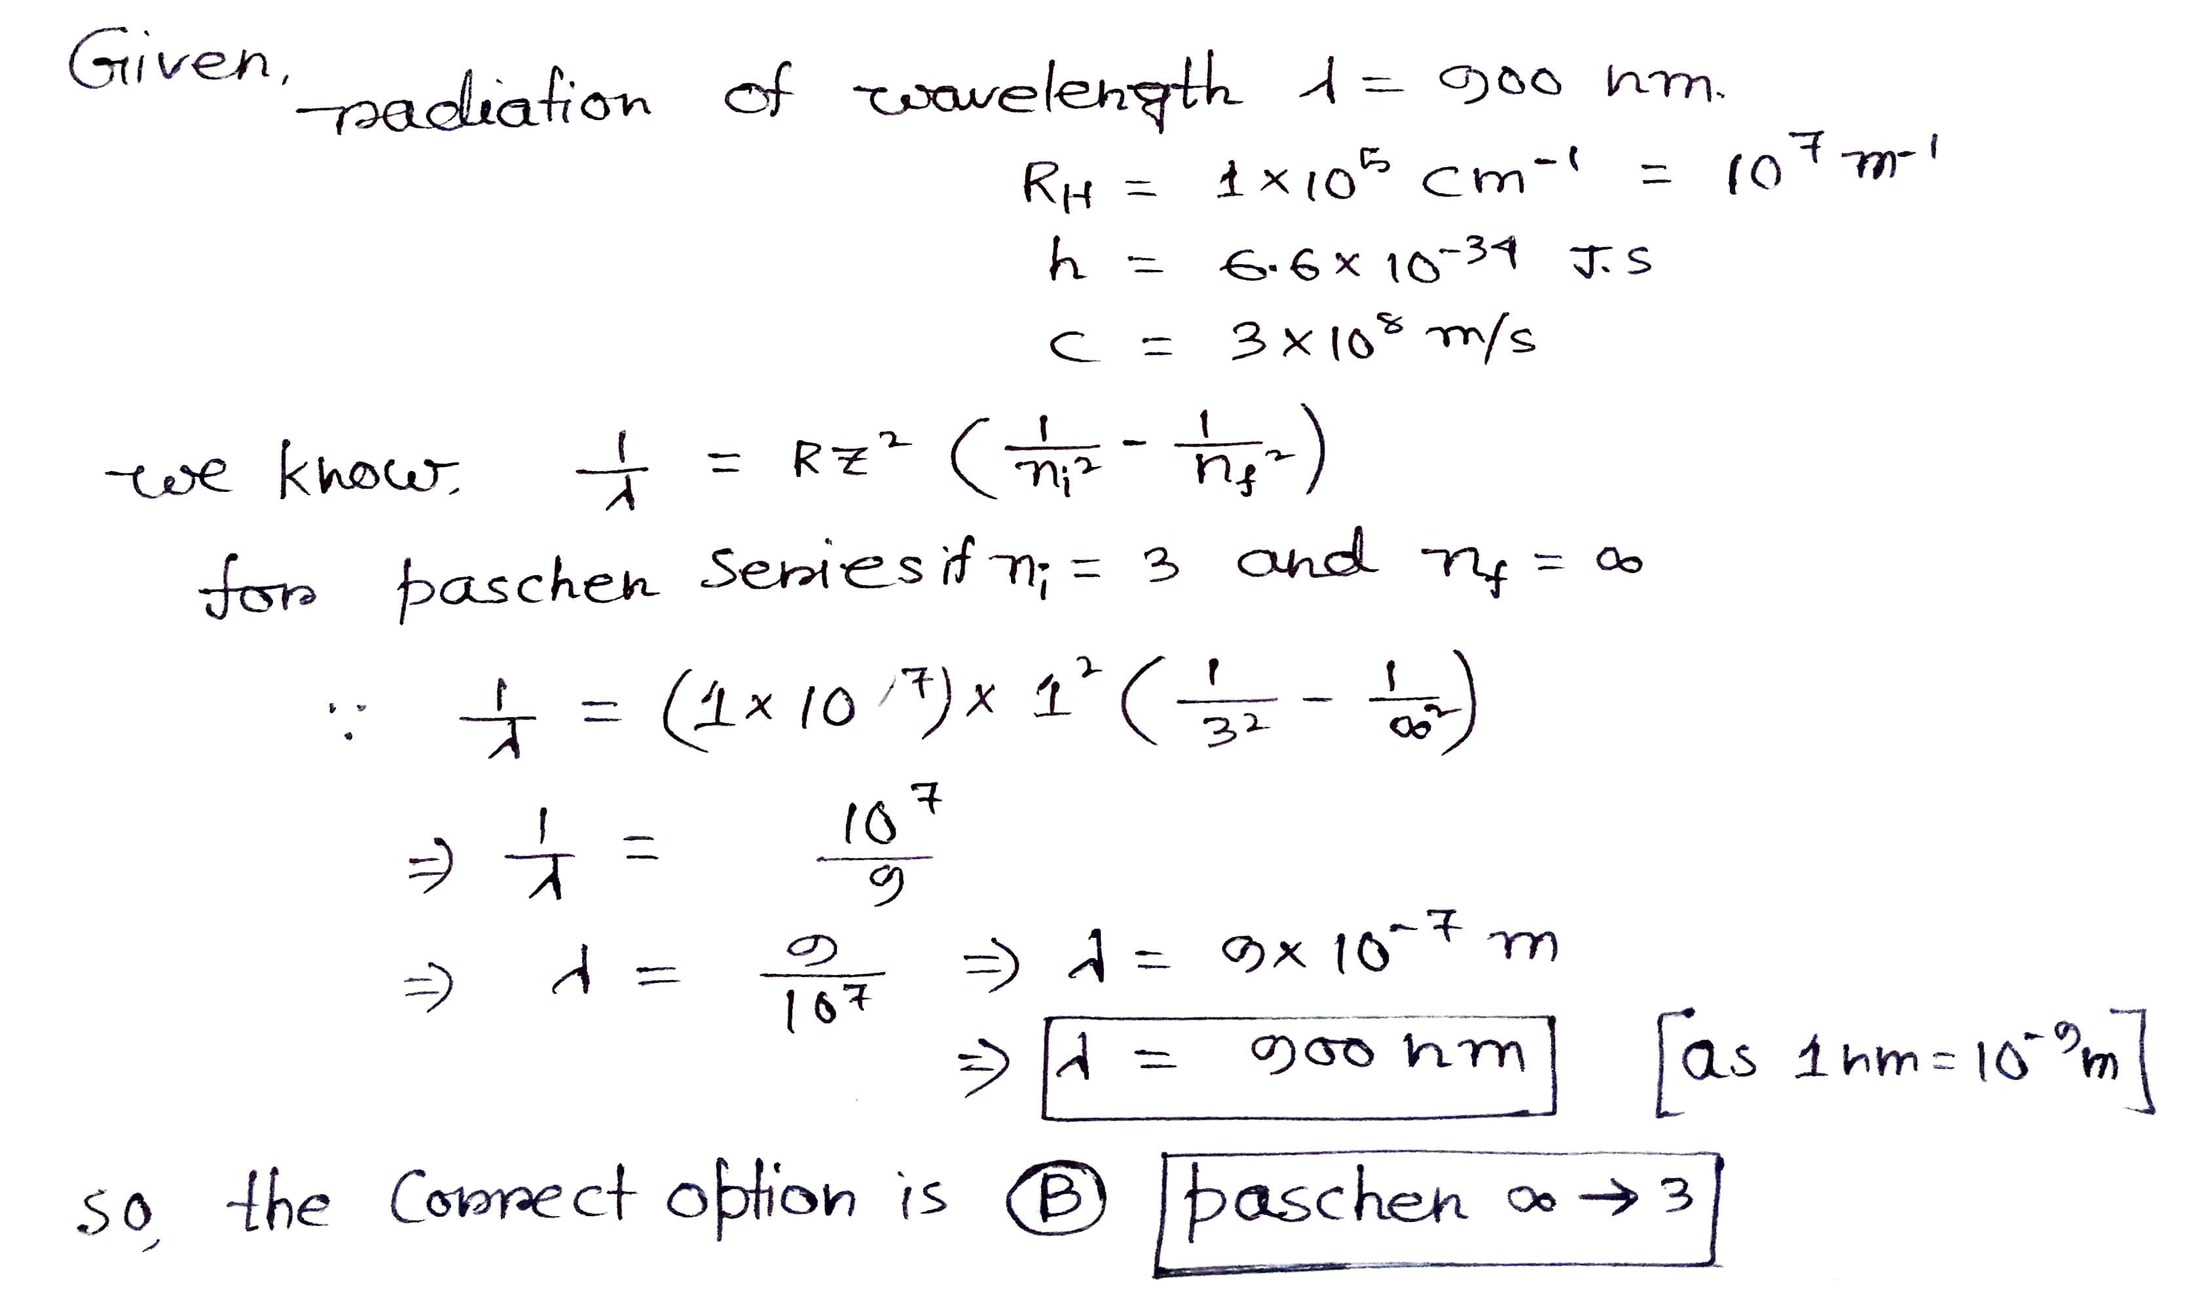 Given, radiation of wavelength λ = 900 nm.
R_H = 1×10⁵ cm⁻¹ = 10⁷ m⁻¹
h = 6.6×10⁻³⁴ J.S
C = 3×10⁸ m/s
we know, 1/λ = RZ² (1/nᵢ² - 1/n_f²)
for paschen series if nᵢ = 3 and n_f = ∞
∵ 1/λ = (1×10⁷)× 1² (1/3² - 1/∞²)
⇒ 1/λ = 10⁷/9
⇒ λ = 9/10⁷ ⇒ λ = 9×10⁻⁷ m
⇒ λ = 900 nm [as 1nm = 10⁻⁹m]
so, the Correct option is Ⓑ paschen ∞ → 3